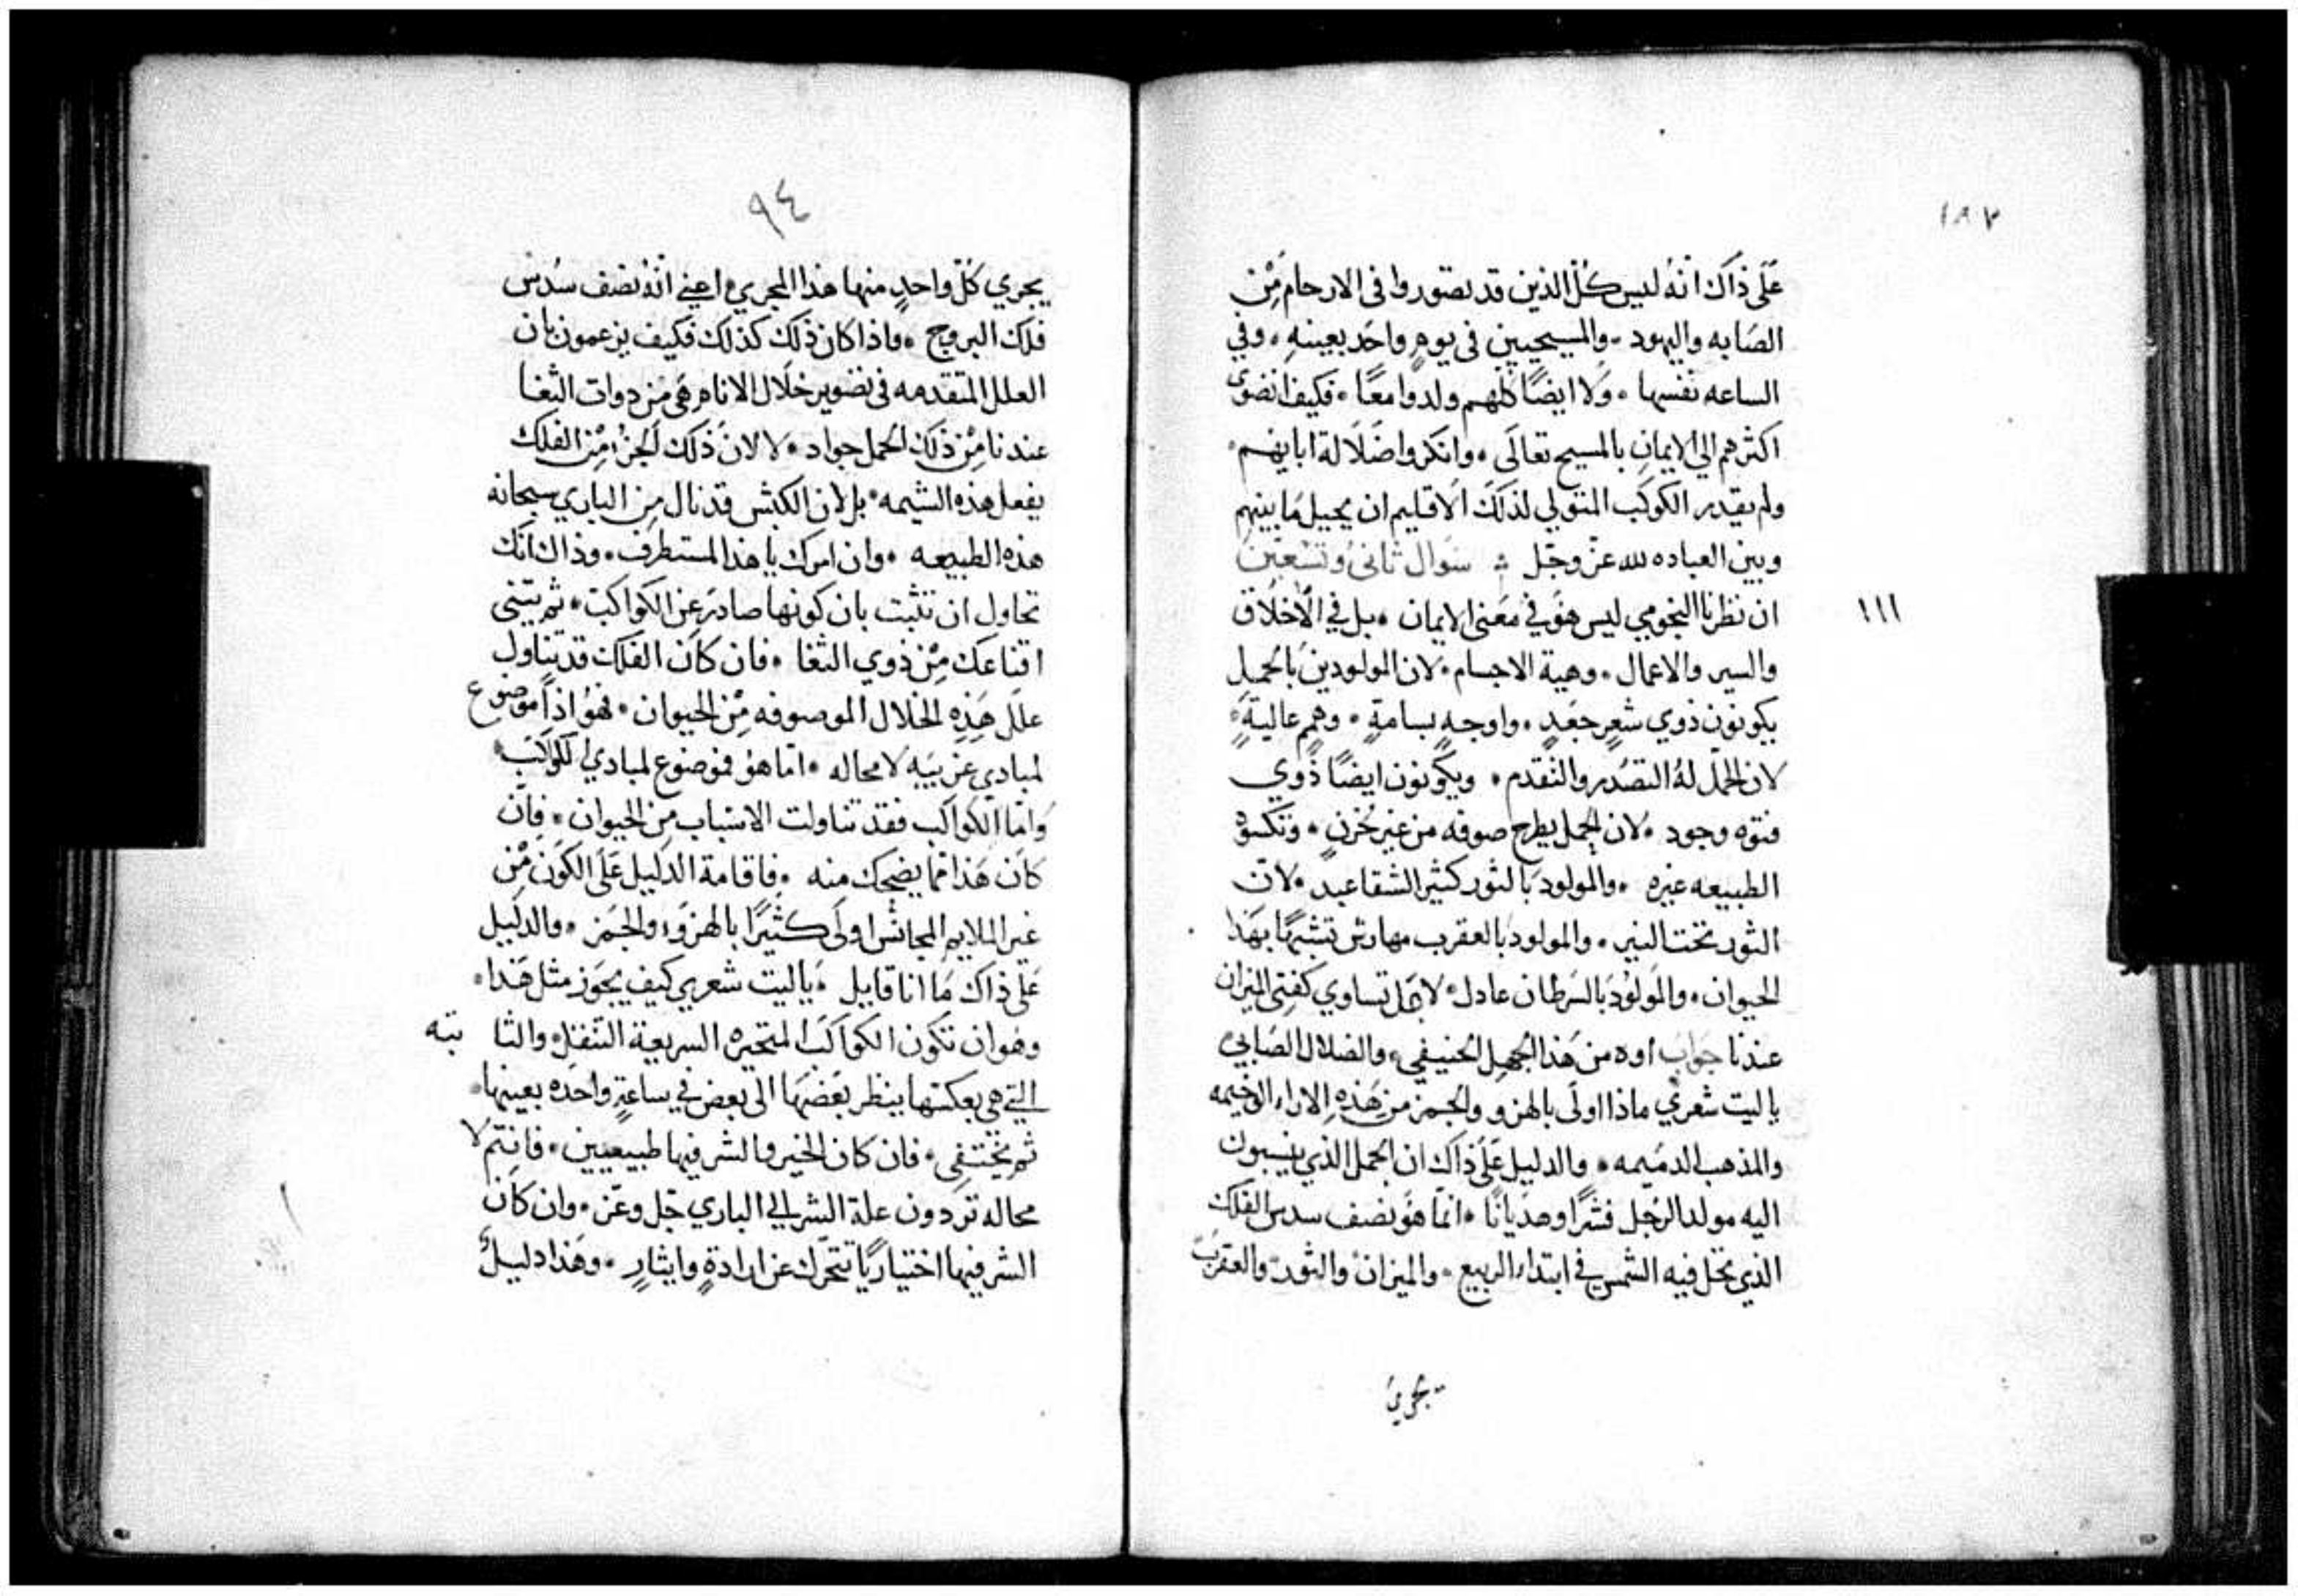 ١٨٧
على ذاك انه ليس كل الذين قد تصوروا فى الارحام من
الصابه واليهود والمسيحيين فى يوم واحد بعينه، وفي
الساعه نفسها، ولا ايضًا كلهم ولدوا معًا، فكيف انضوى
اكثرهم الي الايمان بالمسيح تعالى، وانكروا ضلالة ابايهم
ولم يقدر الكوكب المتولي لذلك الاقليم ان يحيل ما بينهم
وبين العباده لله عز وجل سوال ثانى وتسعين
١١١
ان نظرنا النجومي ليس هو في معنى الايمان، بل في الاخلاق
والسير والاعمال، وهية الاجسام، لان المولودين بالحمل
يكونون ذوي شعرٍ جعدٍ، واوجهٍ بسامةٍ، وهممٍ عاليةٍ
لان الحمل له التصدر والتقدم، ويكونون ايضًا ذوي
فتوه وجود، لان الحمل يطرح صوفه من غير حزنٍ، وتكسوه
الطبيعه غيره، والمولود بالثور كثير الشقا عبد، لان
الثور تحت النير، والمولود بالعقرب مهارش تشبهًا بهذا
الحيوان، والمولود بالسرطان عادل، لاجل تساوي كفتى الميزان
عندنا جواب اوه من هذا الجهل الحنيفي، والضلال الصابي
يا ليت شعري ماذا اولى بالهزو والجمز من هذه الاراء الوخيمه
والمذهب الدميمه، والدليل على ذاك ان الحمل الذي ينسبون
اليه مولد الرجل فشرًا وهذيانًا، انما هو نصف سدس الفلك
الذي تحل فيه الشمس في ابتداء الربيع، والميزان والثور والعقرب
تجري
٩٤
يجري كل واحدٍ منها هذا المجري، اعني انه نصف سدس
فلك البروج، واذا كان ذلك كذلك فكيف يزعمون بان
العلل المتقدمه فى تصوير خلال الانام هى من دوات الثغا
عندنا من ذلك الحمل جواد، لا لان ذلك الجزء من الفلك
يفعل هذه الشيمه، بل لان الكبش قد نال من الباري سبحانه
هذه الطبيعه، وان امرك يا هذا المستطرف، وذاك انك
تحاول ان تثبت بان كونها صادر عن الكواكب، ثم تبتني
اقناعك من ذوي الثغا، فان كان الفلك قد تناول
علل هذه الخلال الموصوفه من الحيوان، فهو اذًا موضوع
لمبادي غريبيه لا محاله، اما هو فموضوع لمبادي الكواكب
واما الكواكب فقد تناولت الاسباب من الحيوان، فان
كان هذا مما يضحك منه، فاقامة الدليل على الكون من
غير الملايم المجانس اولى كثيرًا بالهزو، والجمز، والدليل
على ذاك ما انا قايل، يا ليت شعري كيف يجوز مثل هذا،
وهو ان تكون الكواكب المتحيره السريعة التنقل، والثا بته
التي هي بعكسها ينظر بعضها الى بعض في ساعةٍ واحده بعينها،
ثم تختفي، فان كان الخير والشر فيها طبيعيين، فانتم لا
محاله تردون علة الشر الي الباري جل وعز، وان كان
الشر فيها اختياريًا تتحرك عن ارادةٍ وايثارٍ، وهذا دليل